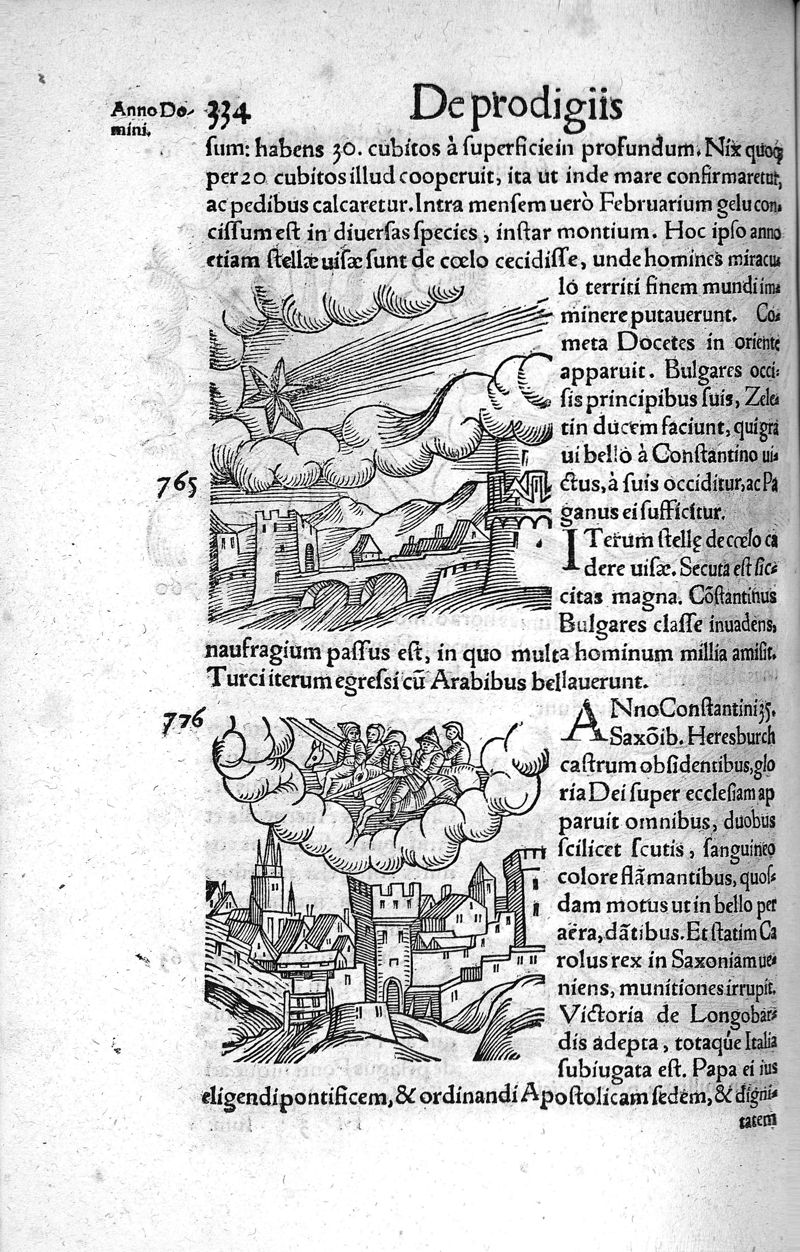 Anno Do-
mini.
334
De prodigiis
sum: habens 30. cubitos à superficie in profundum. Nix quoq;
per 20 cubitos illud cooperuit, ita ut inde mare confirmaretur,
ac pedibus calcaretur. Intra mensem uerò Februarium gelu con-
cissum est in diuersas species, instar montium. Hoc ipso anno
etiam stellæ uisæ sunt de cœlo cecidisse, unde homines miracu
lo territi finem mundi im-
minere putauerunt. Co-
meta Docetes in oriente
apparuit. Bulgares occi-
sis principibus suis, Zele-
tin ducem faciunt, qui gra
ui bello à Constantino ui-
ctus, à suis occiditur, ac Pa
ganus ei sufficitur.
765
ITerum stellę de cœlo ca
dere uisæ. Secuta est sic-
citas magna. Cōstantinus
Bulgares classe inuadens,
naufragium passus est, in quo multa hominum millia amisit.
Turci iterum egressi cū Arabibus bellauerunt.
776
ANno Constantini 35.
Saxōib. Heresburch
castrum obsidentibus, glo
ria Dei super ecclesiam ap
paruit omnibus, duobus
scilicet scutis, sanguineo
colore flāmantibus, quos-
dam motus ut in bello per
aëra, dātibus. Et statim Ca
rolus rex in Saxoniam ue-
niens, munitiones irrupit.
Victoria de Longobar-
dis adepta, totaque Italia
subiugata est. Papa ei ius
eligendi pontificem, & ordinandi Apostolicam sedem, & digni-
tatem